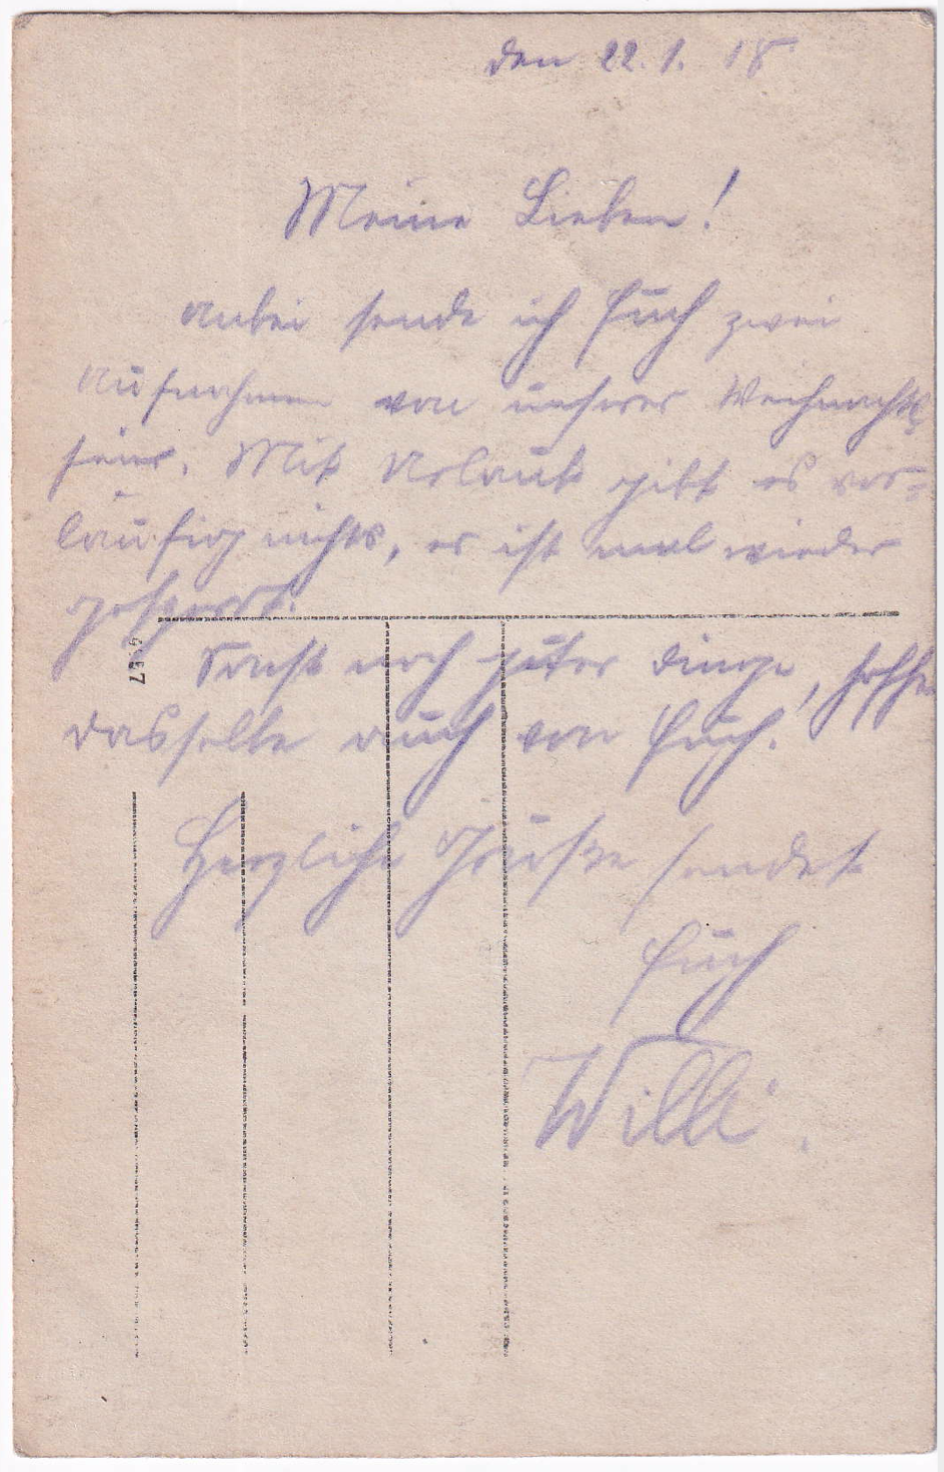 den 22.1.18
Meine Lieben!
Anbei sende ich Euch zwei
Aufnahmen von unserer Weihnachts
feier. Mit Urlaub gibt es vor-
läufig nichts, es ist mal wieder
gesperrt.
Sonst noch guter Dinge, hoffe
dasselbe auch von Euch!
Herzliche Grüße sendet
Euch
Willi.